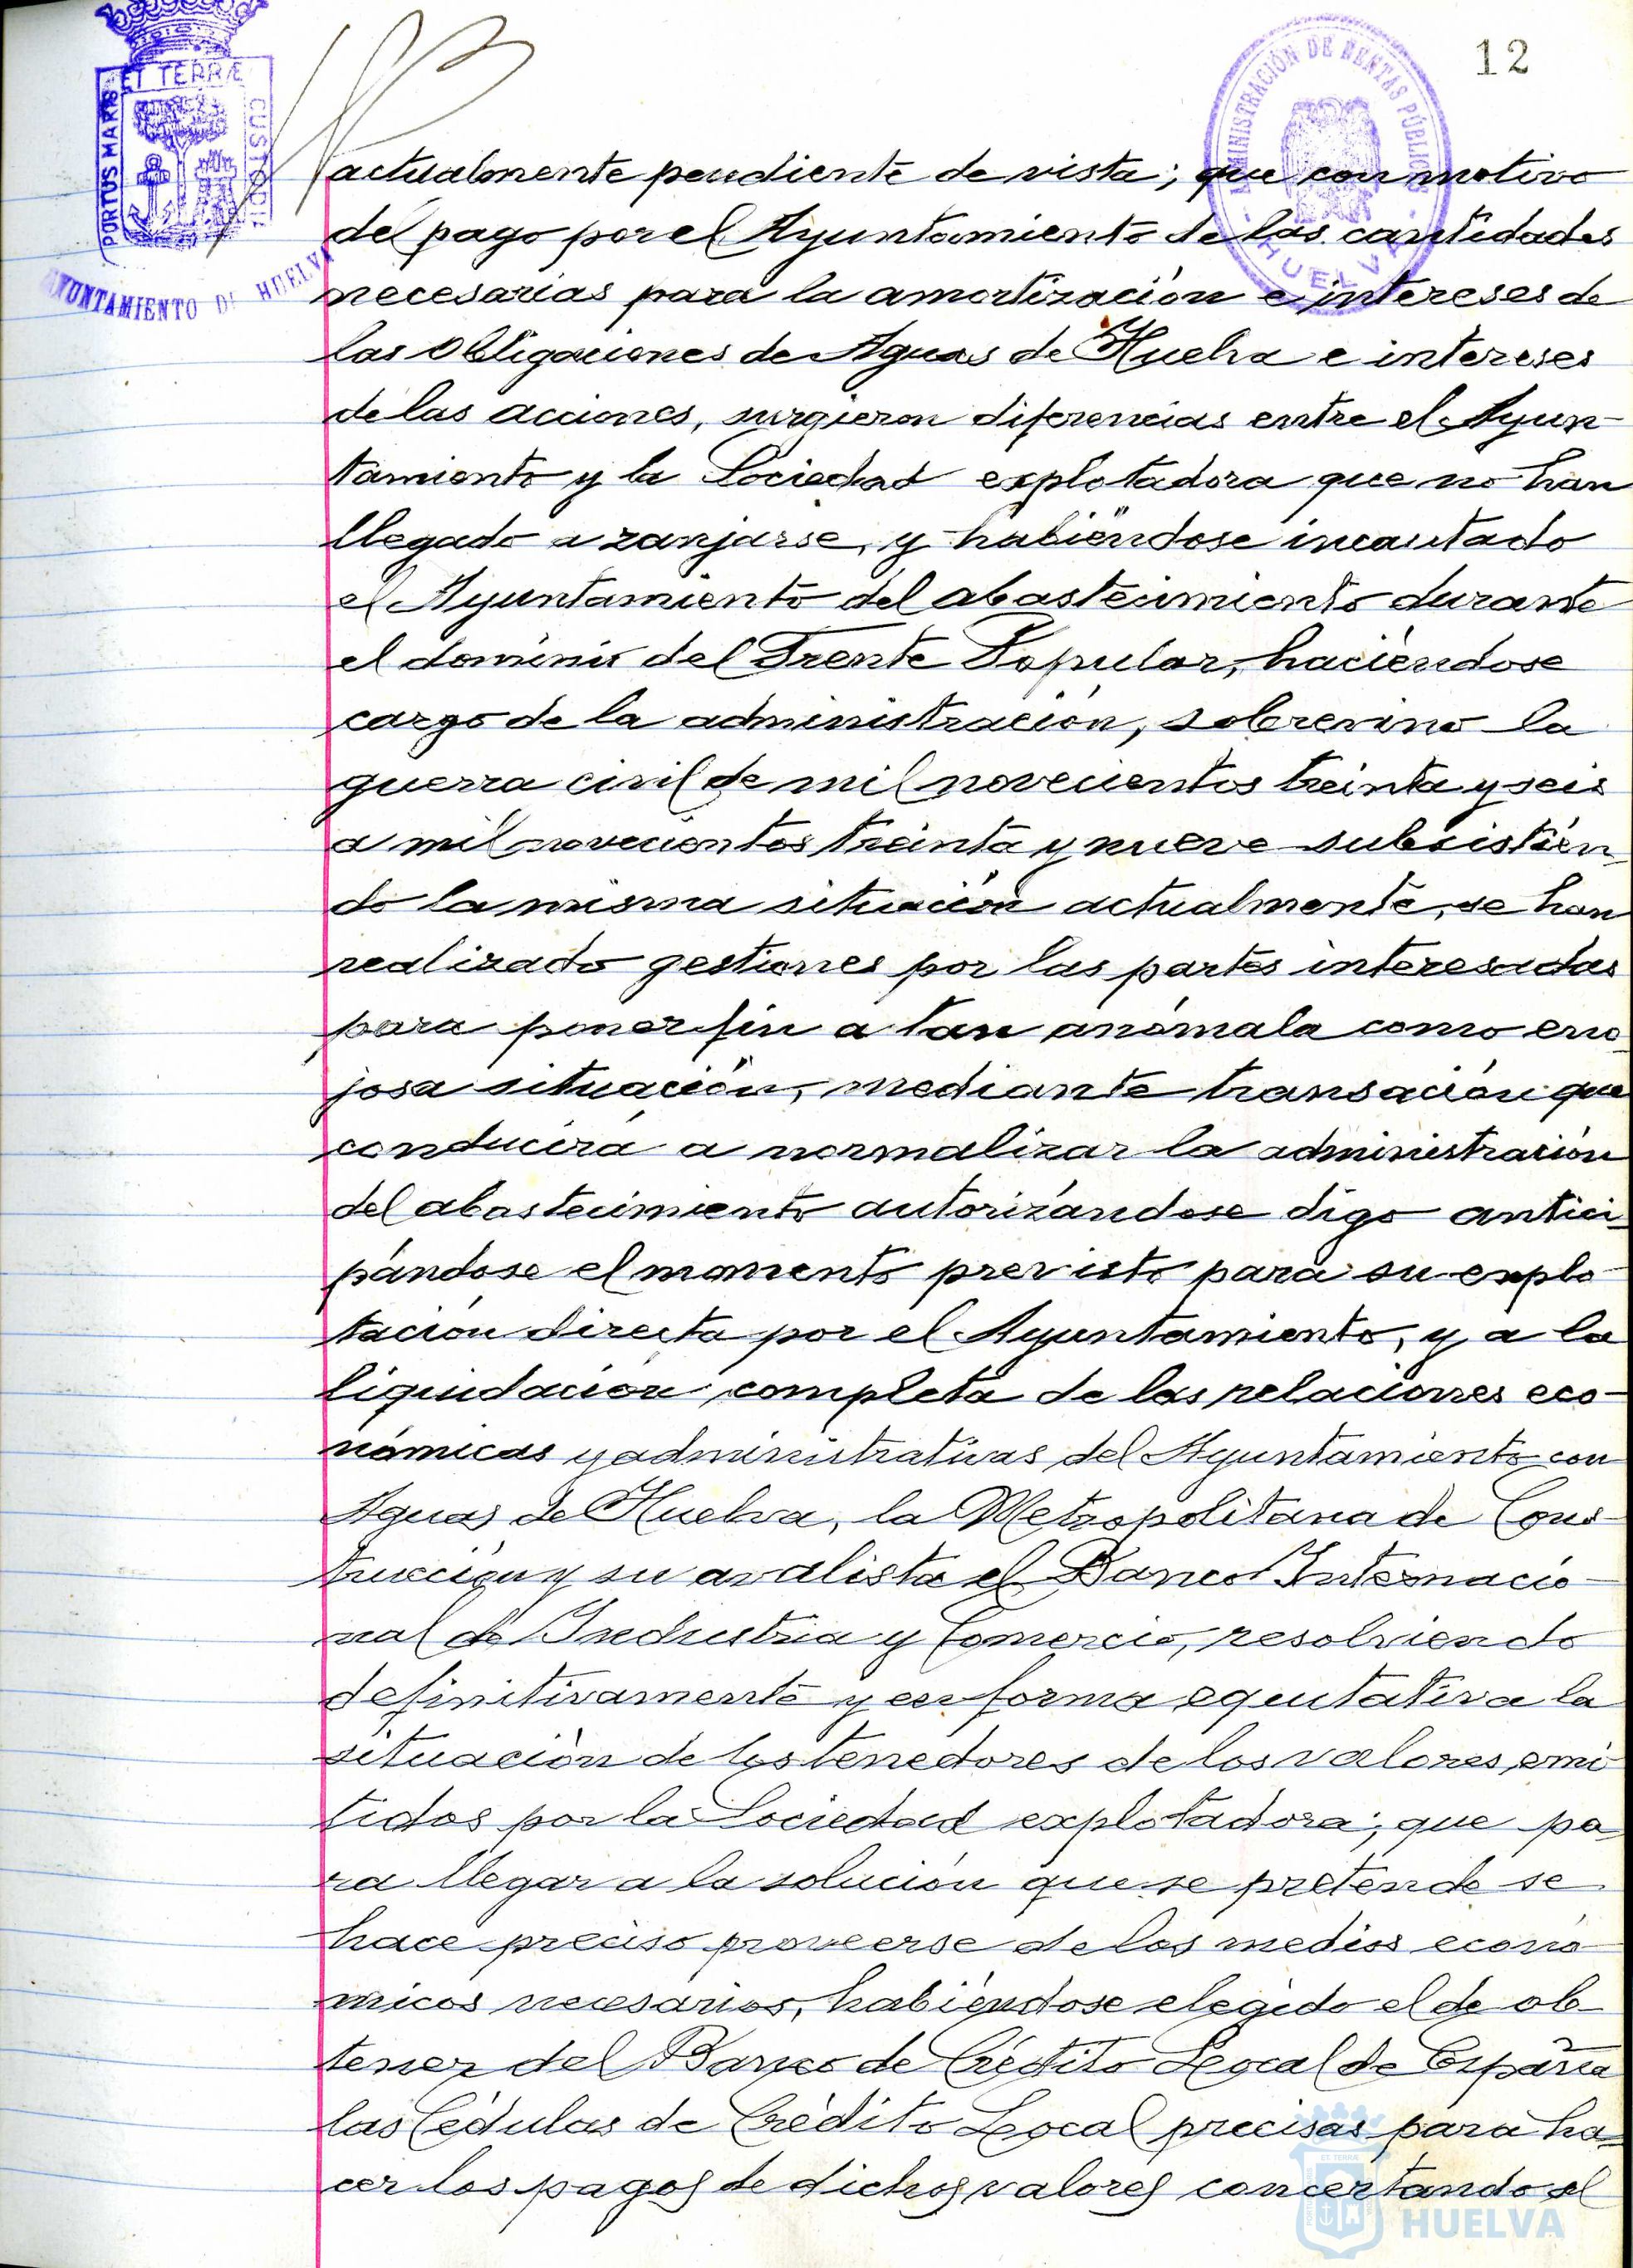 12
ET TERRÆ
PORTUS MARIS
CUSTODIA
AYUNTAMIENTO DE HUELVA
ADMINISTRACIÓN DE RENTAS PÚBLICAS
- HUELVA -
actualmente pendiente de vista; que con motivo
del pago por el Ayuntamiento de las cantidades
necesarias para la amortización e intereses de
las obligaciones de Aguas de Huelva e intereses
de las acciones, surgieron diferencias entre el Ayun-
tamiento y la Sociedad explotadora que no han
llegado a zanjarse, y habiéndose incautado
el Ayuntamiento del abastecimiento durante
el dominio del Frente Popular, haciéndose
cargo de la administración, sobrevino la
guerra civil de mil novecientos treinta y seis
a mil novecientos treinta y nueve subsistién-
do la misma situación actualmente, se han
realizado gestiones por las partes interesadas
para poner fin a tan anómala como eno-
josa situación, mediante transación que
conducirá a normalizar la administración
del abastecimiento autorizándose digo antici-
pándose el momento previsto para su explo-
tación directa por el Ayuntamiento, y a la
liquidación completa de las relaciones eco-
nómicas y administrativas del Ayuntamiento con
Aguas de Huelva, la Metropolitana de Cons-
trucción y su avalista el Banco Internacio-
nal de Industria y Comercio, resolviendo
definitivamente y en forma equitativa la
situación de los tenedores de los valores emi-
tidos por la Sociedad explotadora; que pa-
ra llegar a la solución que se pretende se
hace preciso proveerse de los medios econó-
micos necesarios, habiéndose elegido el de ob-
tener del Banco de Crédito Local de España
las Cédulas de Crédito Local precisas para ha-
cer los pagos de dichos valores concertando el
HUELVA